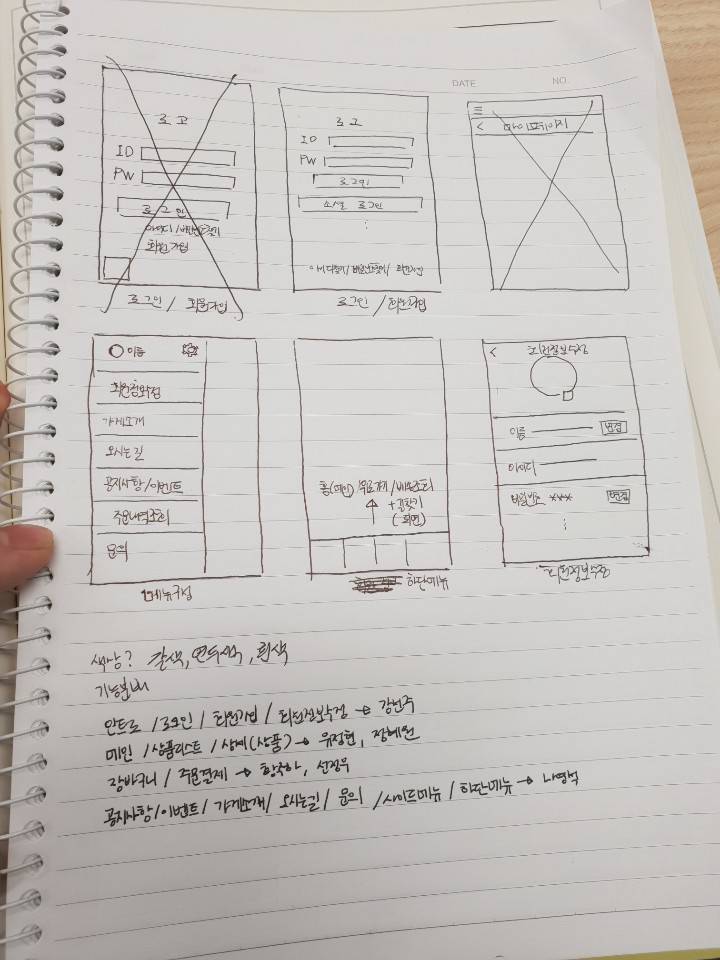 DATE
NO.
로고
ID
PW
로그인
아이디/비밀번호찾기
회원가입
로그인 / 회원가입
로고
ID
PW
로그인
소셜 로그인
⋮
아이디찾기/비밀번호찾기/회원가입
로그인 / 회원가입
<
마이페이지
이름
회원정보수정
가게소개
오시는길
공지사항/이벤트
주문내역조회
문의
메뉴구성
홈(메인)/
+길찾기
(화면)
하단메뉴
<
회원정보수정
이름
변경
아이디
비밀번호 ***
변경
⋮
회원정보수정
색상? 갈색, 연두색, 흰색
기능분배
인트로 / 로그인 / 회원가입 / 회원정보수정 →
메인 / 상품리스트 / 상세(상품) → 유정현, 정혜원
장바구니 / 주문결제 →
공지사항/이벤트/ 가게소개/ 오시는길/ 문의 /사이드메뉴 / 하단메뉴 →